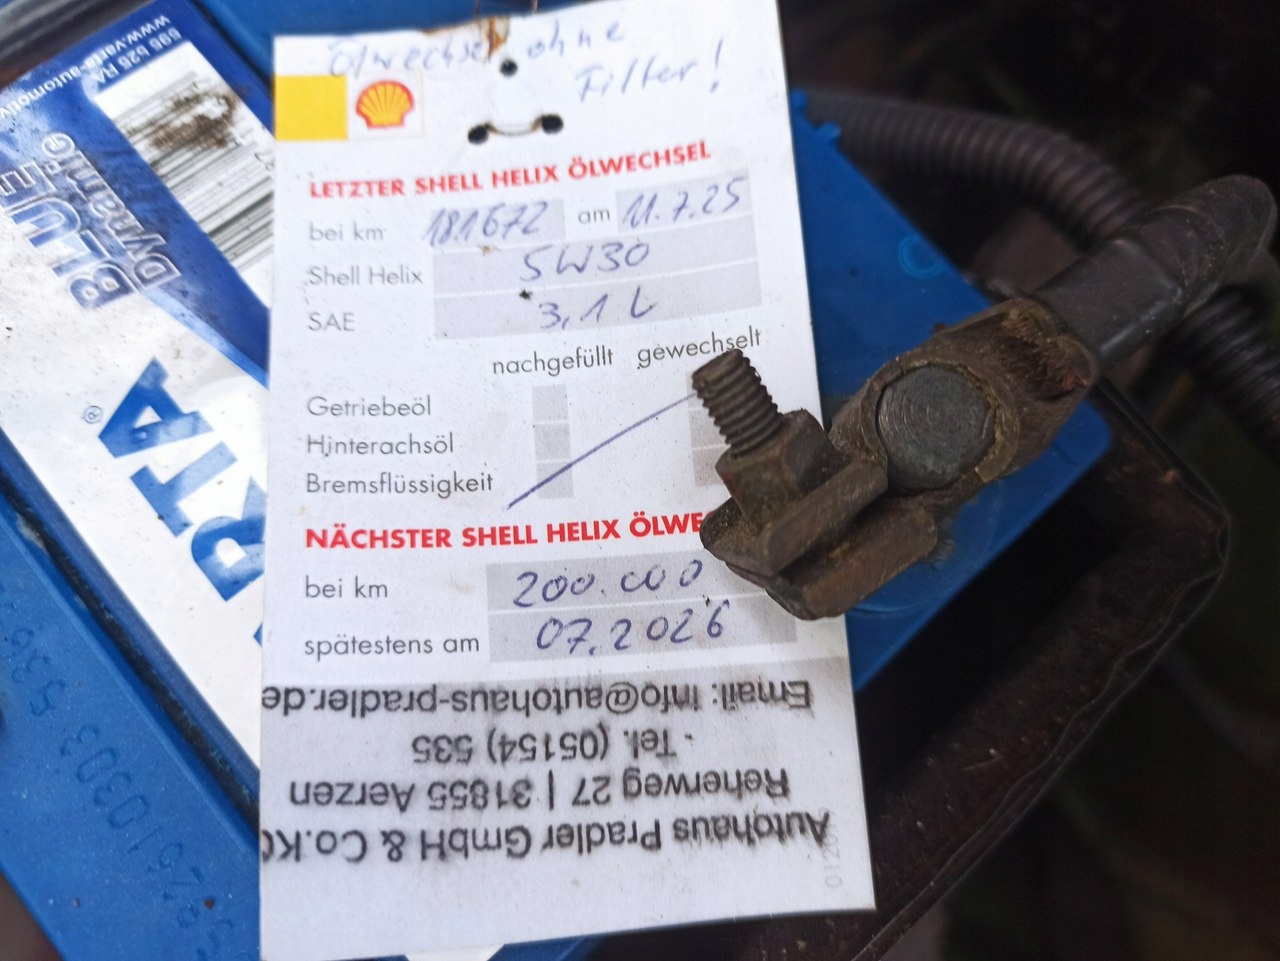 Ölwechsel ohne
Filter!
LETZTER SHELL HELIX ÖLWECHSEL
bei km 181672 am 11.7.25
Shell Helix 5W30
SAE 3,1 L
nachgefüllt gewechselt
Getriebeöl
Hinterachsöl
Bremsflüssigkeit
NÄCHSTER SHELL HELIX ÖLWE
bei km 200.000
spätestens am 07.2026
Autohaus Pradler GmbH & Co.KG
Reherweg 27 | 31855 Aerzen
Tel. (05154) 535
Email: info@autohaus-pradler.de
BLUE
Dynamic®
www.varta-automotiv
RTA®